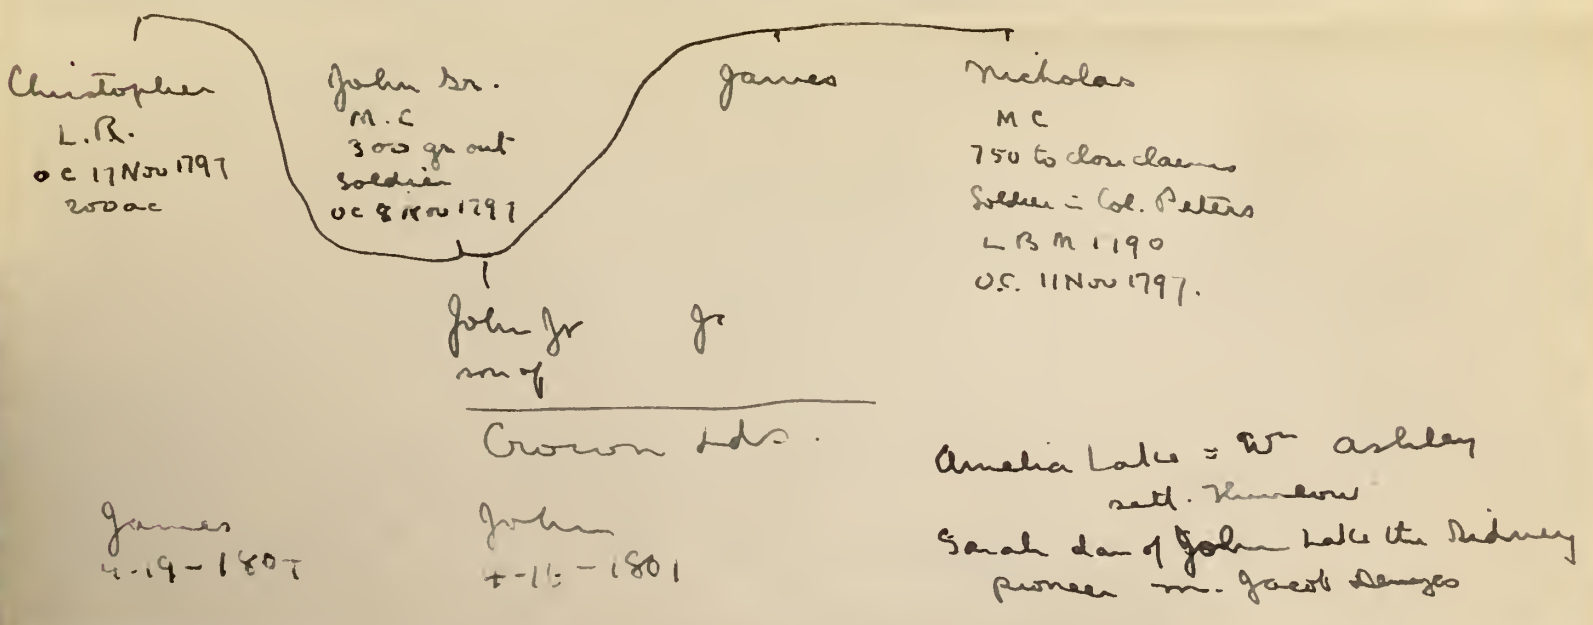 Christopher
L.R.
O C 17 Nov 1797
200 ac
John Sr.
M.C
300 gr out
Soldier
OC 8 Nov 1797
James
Nicholas
M C
750 to close claims
Soldier in Col. Peters
L B M 1190
O.C. 11 Nov 1797.
John Jr
son of
Jr
Crown Lds.
James
John
1801
Amelia Lake = Wm Ashley
settl. Thurlow
Sarah dau of John Lake the Sidney
pioneer m. Jacob